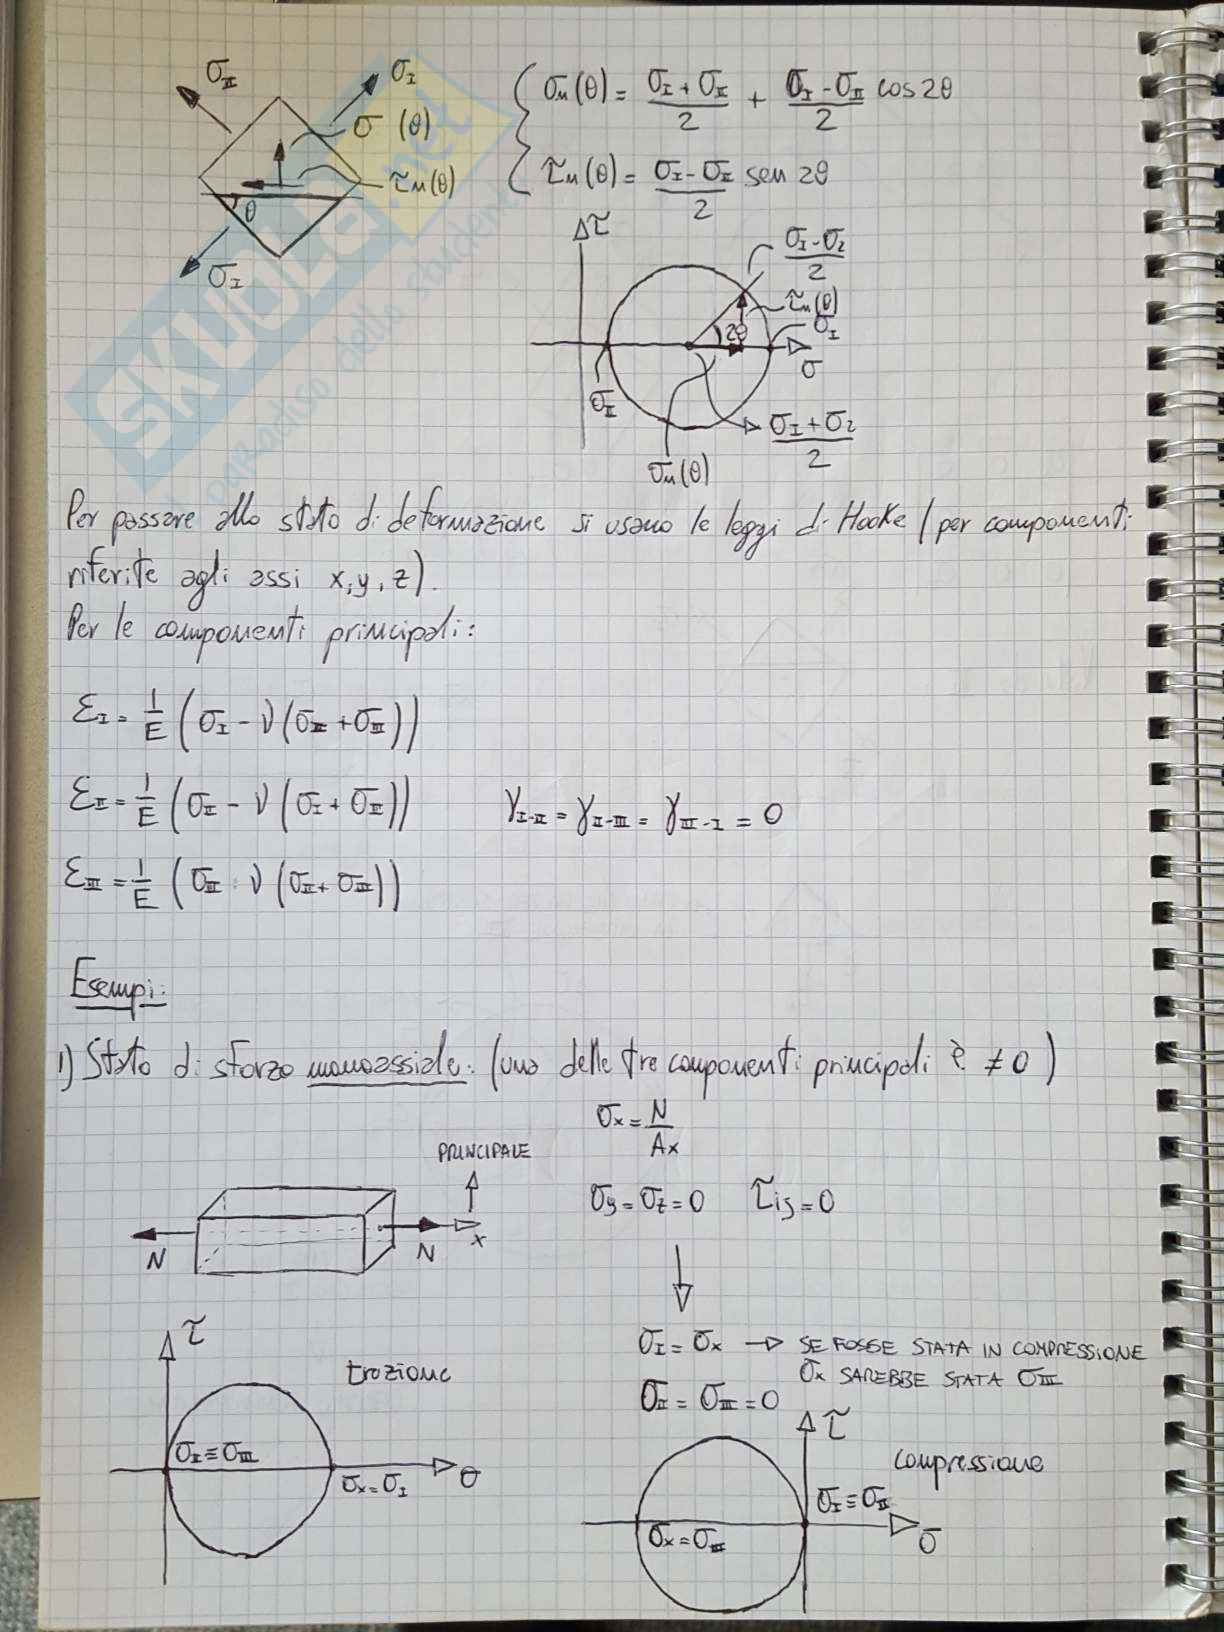 σ_II
σ_I
σ (θ)
τ_n(θ)
θ
σ_I
σ_n(θ) = (σ_I + σ_II)/2 + (σ_I - σ_II)/2 cos 2θ
τ_n(θ) = (σ_I - σ_II)/2 sen 2θ
τ
(σ_I - σ_2)/2
τ_n(θ)
σ_I
2θ
σ
σ_II
(σ_I + σ_2)/2
σ_n(θ)
SKUOLA.net
il paradiso dello studente
Per passare allo stato di deformazione si usano le leggi di Hooke (per componenti
riferite agli assi x, y, z).
Per le componenti principali:
ε_I = 1/E (σ_I - ν (σ_II + σ_III))
ε_II = 1/E (σ_II - ν (σ_I + σ_III))
γ_I-II = γ_II-III = γ_III-I = 0
ε_III = 1/E (σ_III - ν (σ_II + σ_III))
Esempi:
1) Stato di sforzo monoassiale: (una delle tre componenti principali è ≠ 0)
σx = N/Ax
PRINCIPALE
σy = σz = 0 τij = 0
N
N
x
σ_I = σx → SE FOSSE STATA IN COMPRESSIONE
σx SAREBBE STATA σ_III
σ_II = σ_III = 0
τ
trazione
σ_II ≡ σ_III
σx = σ_I
σ
τ
compressione
σ_I ≡ σ_II
σx = σ_III
σ